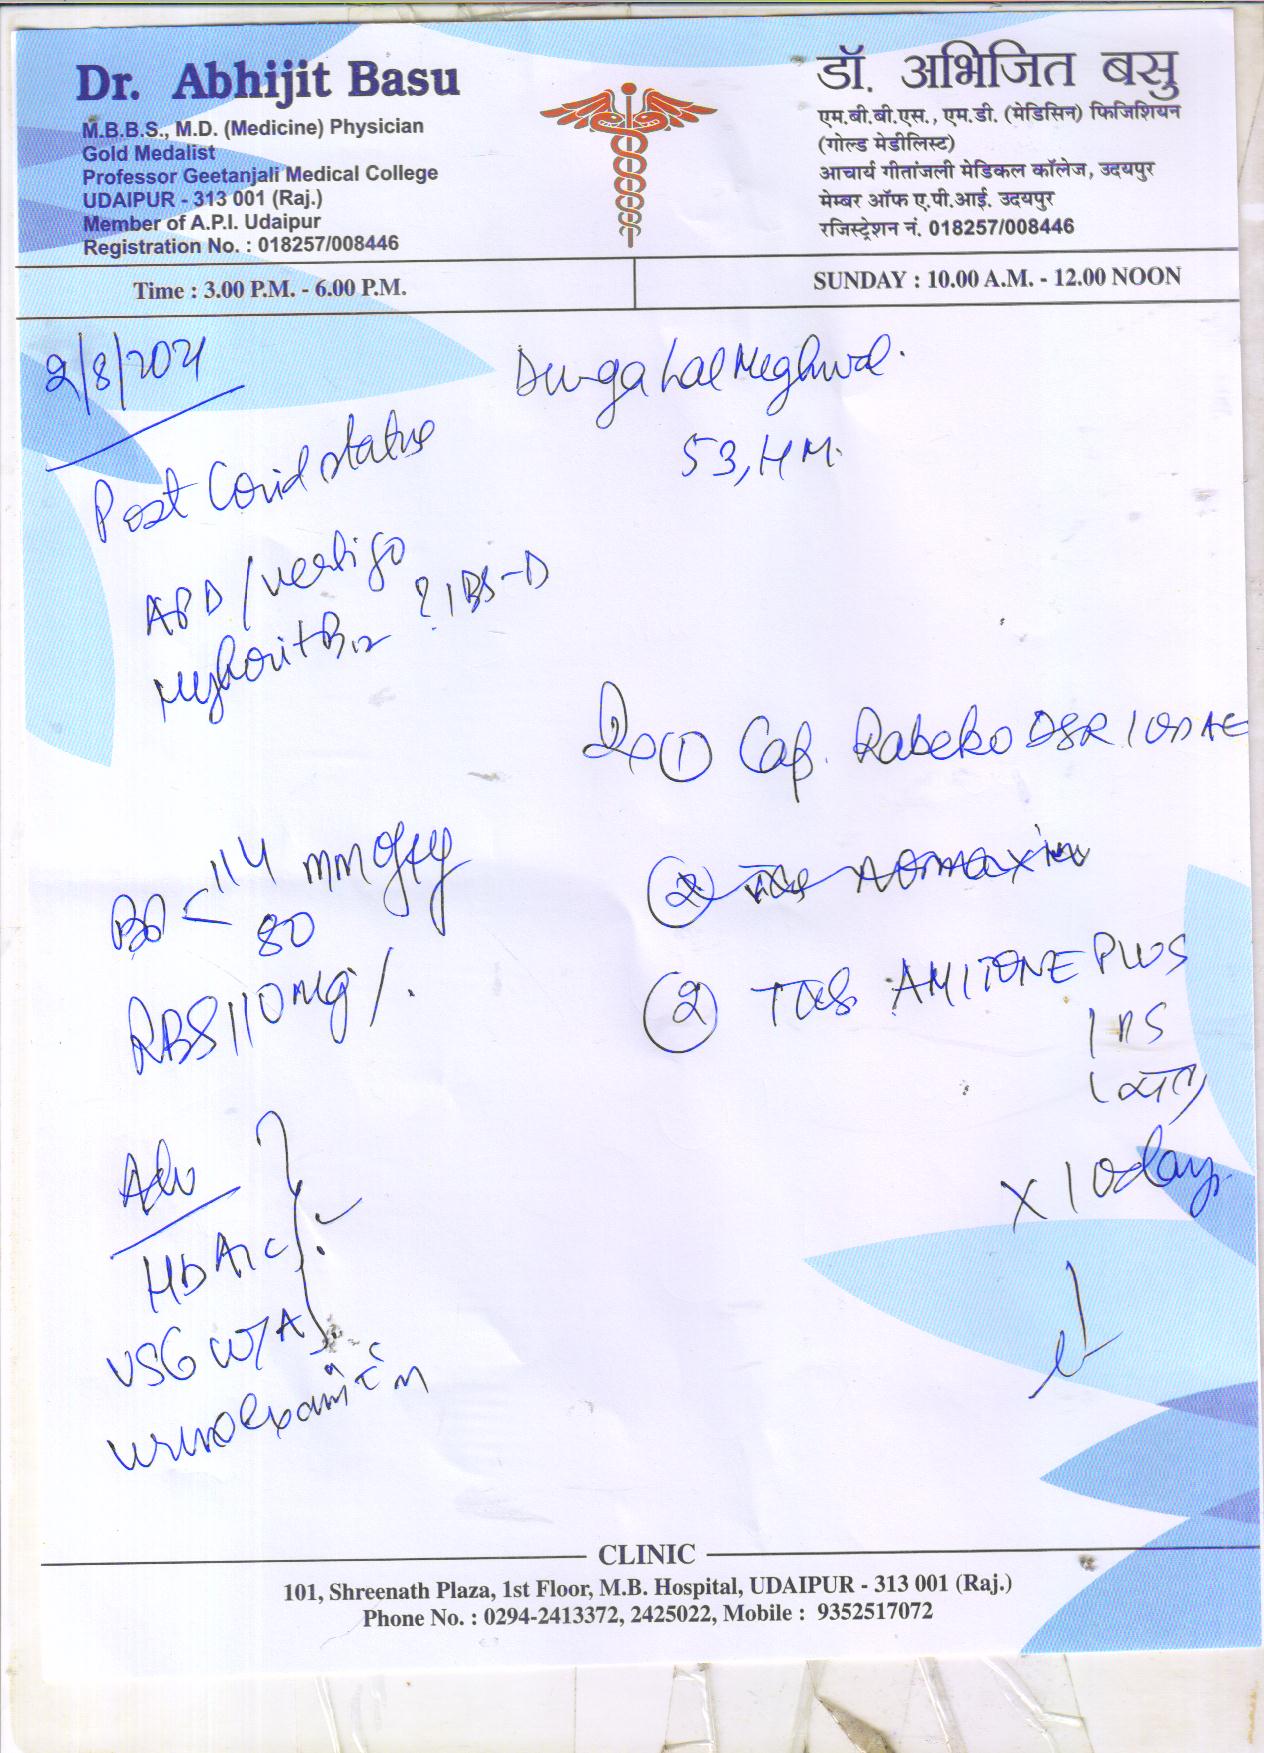 Dr. Abhijit Basu
M.B.B.S., M.D. (Medicine) Physician
Gold Medalist
Professor Geetanjali Medical College
UDAIPUR - 313 001 (Raj.)
Member of A.P.I. Udaipur
Registration No. : 018257/008446
डॉ. अभिजित बसु
एम.बी.बी.एस., एम.डी. (मेडिसिन) फिजिशियन
(गोल्ड मेडीलिस्ट)
आचार्य गीतांजली मेडिकल कॉलेज, उदयपुर
मेम्बर ऑफ ए.पी.आई. उदयपुर
रजिस्ट्रेशन नं. 018257/008446
Time : 3.00 P.M. - 6.00 P.M.
SUNDAY : 10.00 A.M. - 12.00 NOON
2/8/2021
Durga Lal Meghwal.
53, H M.
Post Covid status
APD / vertigo
? IBS-D
BP 114 mmofHg
80
RBS 110 mg/.
Adv
HbA1c
USG W/A
Rx ① Cap. Rabeko DSR 1 OD AC
② Tab
② Tab AMITONE PLUS
1 HS
x 10 days
CLINIC
101, Shreenath Plaza, 1st Floor, M.B. Hospital, UDAIPUR - 313 001 (Raj.)
Phone No. : 0294-2413372, 2425022, Mobile : 9352517072